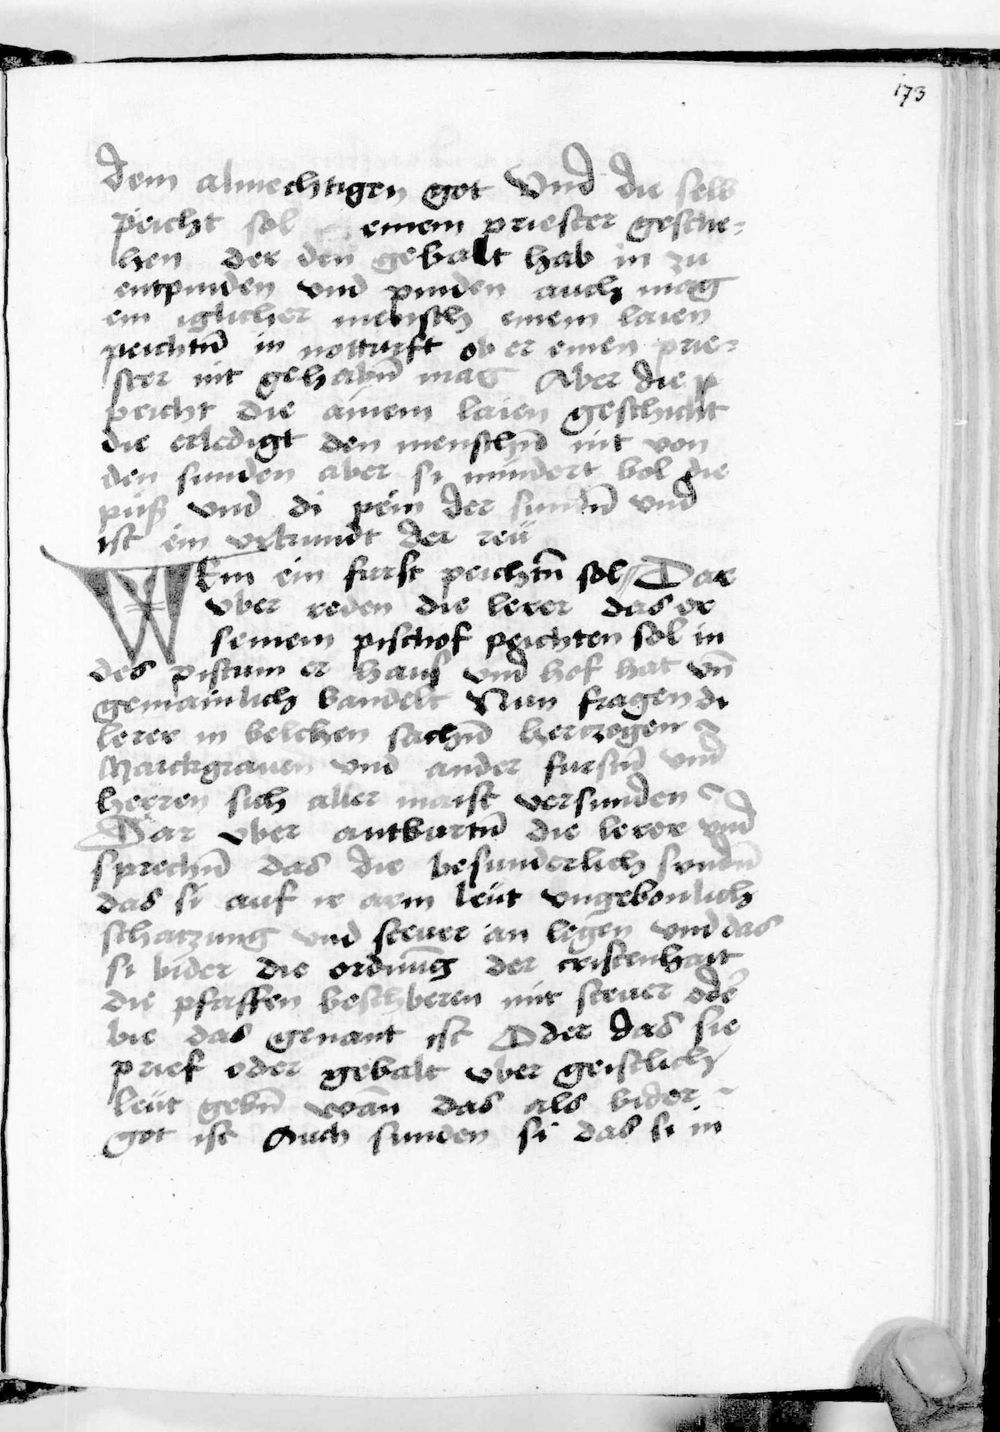 173
dem almechtigen got Vnd die selb
peicht sol einem priester gesche-
hen der den gebalt hab in zu
entpinden vnd pinden auch mag
ein iglicher mensch einem laien
peichtn̄ in notturft ob er einen prie-
ster nit gehabn̄ mag Aber die p
peicht die ainem laien geschicht
die erledigt den menschn̄ nit von
den sunden aber si mindert bol die
puß vnd di pein der sundn̄ vnd
ist ein vrkundt der reü
Wem ein furst peichtn̄ sol // Dar
vber reden die lerer das er
seinem pischof peichten sol in
des pistum er haus vnd hof hat vn̄
gemainlich bandelt Nun fragen di
lerer in belchen sachn̄ hertzogen
Marckgrauen vnd ander furstn̄ vnd
herren sich aller maist versunden
Dar vber antburtn̄ die lerer vnd
sprechn̄ das die besunderlich sundn̄
das si auf ir arm leüt vngebonlich
schatzung vnd steuer an legen vnd das
si bider die ordnūg der cristenhait
die pfaffen beschberen mit steuer oder
bie das genant ist Oder das sie
prief oder gebalt vber geistlich
leüt gebn̄ wān das als bider
got ist Auch sunden si das si in